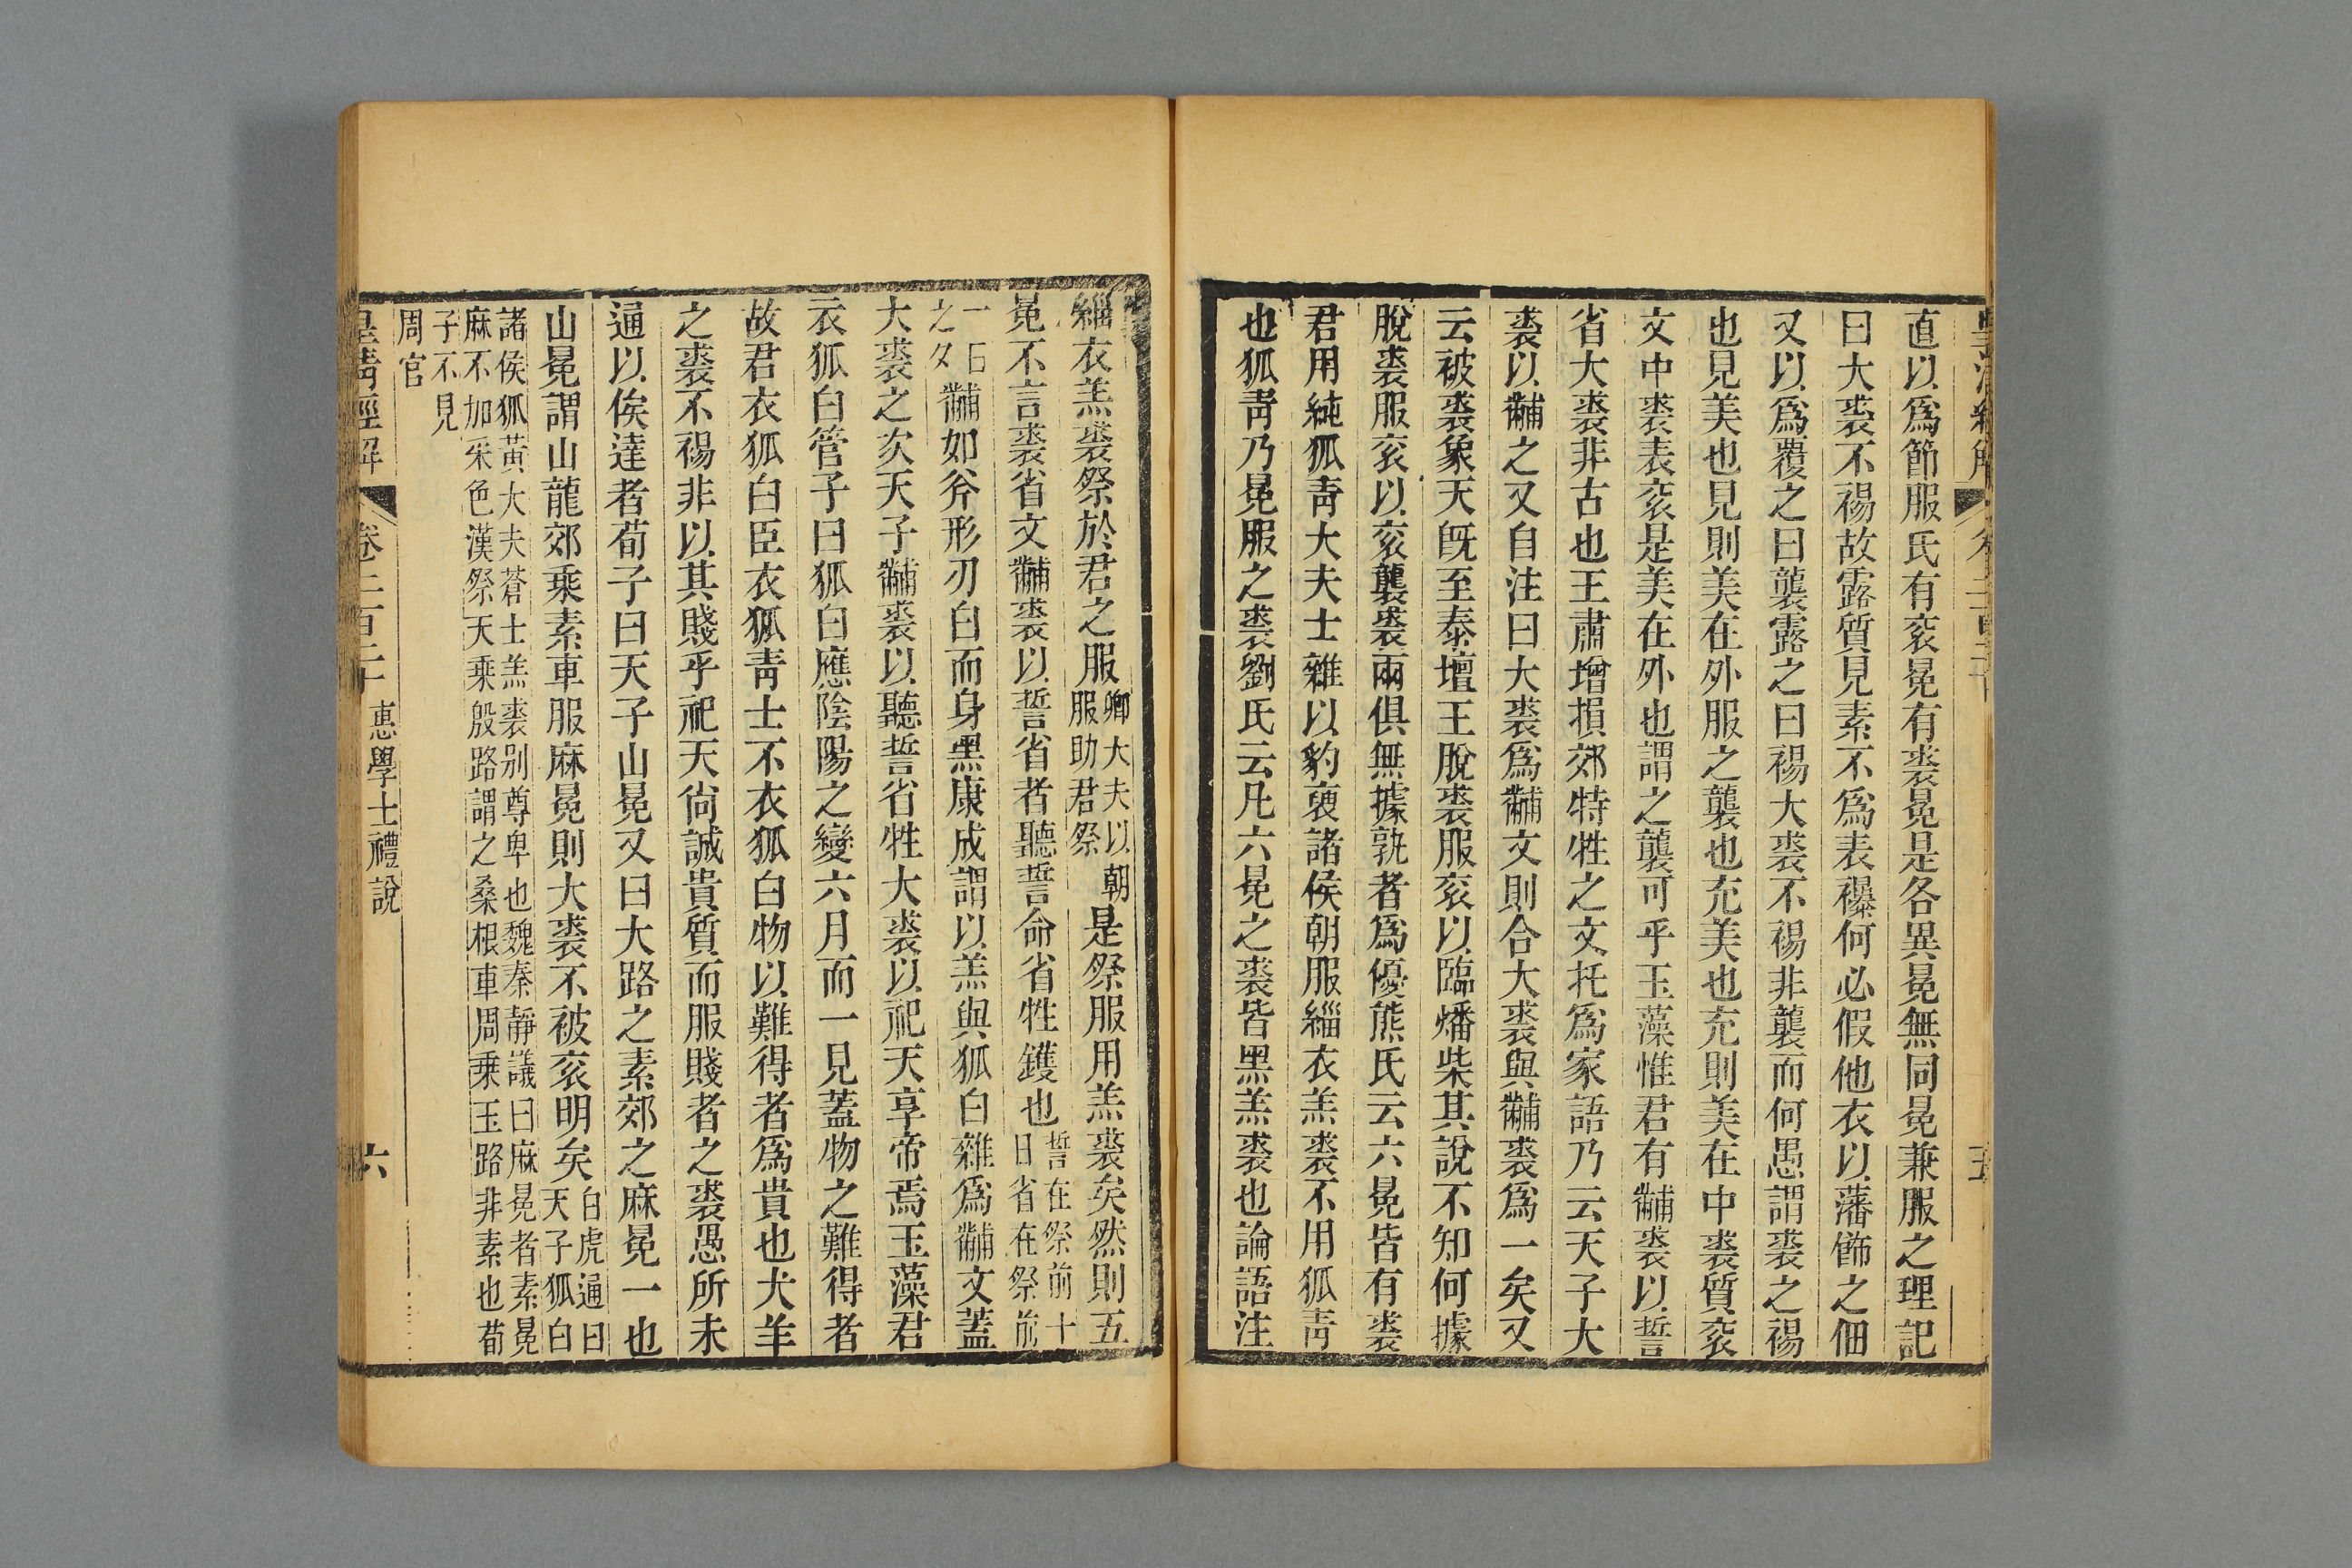 直以爲節服氏有衮冕有裘冕是各異冕無同冕兼服之理記
曰大裘不裼故露質見素不爲表襮何必假他衣以藩飾之佃
又以爲覆之曰襲露之曰裼大裘不裼非襲而何愚謂裘之裼
也見美也見則美在外服之襲也充美也充則美在中裘質衮
文中裘表衮是美在外也謂之襲可乎玉藻惟君有黼裘以誓
省大裘非古也王肅增損郊特牲之文托爲家語乃云天子大
裘以黼之又自注曰大裘爲黼文則合大裘與黼裘爲一矣又
云被裘象天既至泰壇王脫裘服衮以臨燔柴其說不知何據
脫裘服衮以衮襲裘兩俱無據孰者爲優熊氏云六冕皆有裘
君用純狐靑大夫士雜以豹褎諸侯朝服緇衣羔裘不用狐靑
也狐靑乃冕服之裘劉氏云凡六冕之裘皆黑羔裘也論語注
緇衣羔裘祭於君之服卿大夫以朝服助君祭是祭服用羔裘矣然則五
冕不言裘省文黼裘以誓省者聽誓命省牲鑊也誓在祭前十日省在祭前
一日之夕黼如斧形刃白而身黑康成謂以羔與狐白雜爲黼文蓋
大裘之次天子黼裘以聽誓省牲大裘以祀天享帝焉玉藻君
衣狐白管子曰狐白應陰陽之變六月而一見蓋物之難得者
故君衣狐白臣衣狐靑士不衣狐白物以難得者爲貴也犬羊
之裘不裼非以其賤乎祀天尙誠貴質而服賤者之裘愚所未
通以俟達者荀子曰天子山冕又曰大路之素郊之麻冕一也
山冕謂山龍郊乘素車服麻冕則大裘不被衮明矣白虎通曰天子狐白
諸侯狐黃大夫蒼士羔裘別尊卑也魏秦靜議曰麻冕者素冕
麻不加采色漢祭天乘殷路謂之桑根車周乘玉路非素也荀
子不見
周官
皇淸經解 卷二百二十 惠學士禮說 六